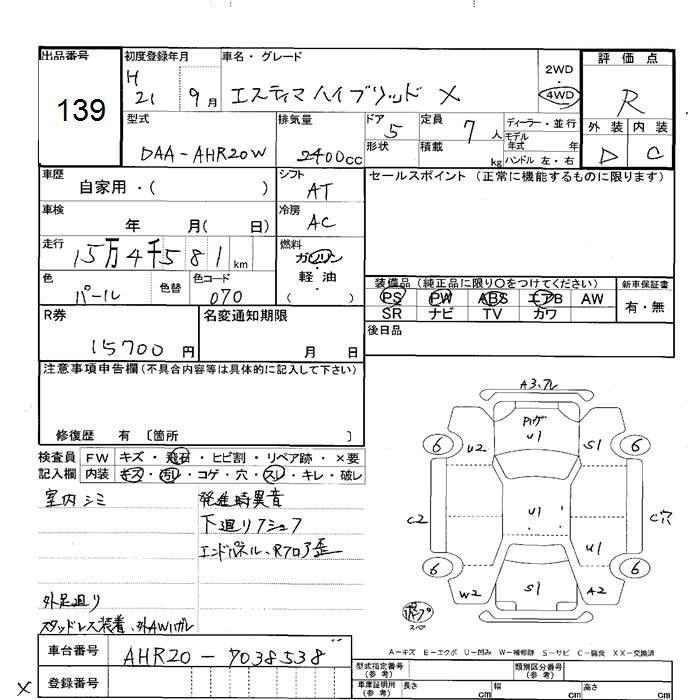 出品番号
139
初度登録年月
H
21 9月
車名・グレード
エスティマ ハイブリッド X
2WD
・
4WD
評価点
R
外装 内装
D C
型式
DAA-AHR20W
排気量
2400cc
ドア 5
形状
定員 7 人
積載 kg
ディーラー・並行
モデル
年式 年
ハンドル 左・右
車歴
自家用・( )
シフト
AT
セールスポイント(正常に機能するものに限ります)
車検
年 月( 日)
冷房
AC
走行
15万4千581km
燃料
ガソリン
・
軽・油
( )
色
パール
色替
色コード
070
装備品(純正品に限り○をつけてください)
PS PW ABS エアB AW
SR ナビ TV カワ
新車保証書
有・無
R券
15700円
名変通知期限
月 日
後日品
注意事項申告欄(不具合内容等は具体的に記入して下さい)
修復歴 有 〔箇所 〕
検査員
記入欄
FW キズ・飛石・ヒビ割・リペア跡・×要
内装 キズ・汚レ・コゲ・穴・スレ・キレ・破レ
室内シミ
発進時異音
下廻りフシュフ
エンドパネル、Rフロア歪
外足廻り
スタッドレス装着、外AWリガレ
A3,フレ
Pitグ
U1
6 U2 S1 6
C2 U1 C穴
U1
6 W2 S1 A2 6
ポンプ
スペ
A=キズ E=エクボ U=凹み W=補修跡 S=サビ C=腐食 XX=交換済
車台番号
AHR20-7038538
登録番号
X
型式指定番号
(参考)
類別区分番号
(参考)
車庫証明用
(参考)
長さ cm 幅 cm 高さ cm